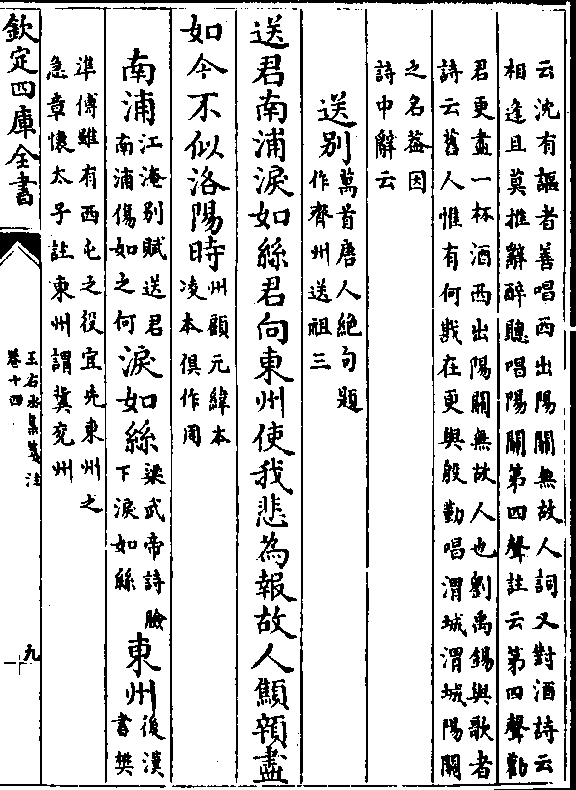 云沈有謳者善唱西出陽關無故人詞又對酒詩云
相逢且莫推辭醉聽唱陽關第四聲註云第四聲勸
君更盡一杯酒西出陽關無故人也劉禹錫與歌者
詩云舊人惟有何戡在更與殷勤唱渭城渭城陽關
之名葢因
詩中辭云
送別萬首唐人絶句題
作齊州送祖三
送君南浦淚如絲君向東州使我悲為報故人顦顇盡
如今不似洛陽時州顧元緯本
凌本俱作周
南浦江淹别賦送君
南浦傷如之何淚如絲梁武帝詩臉
下淚如絲東州後漢
書樊
準傳雖有西屯之役宜先東州之
急章懷太子註東州謂冀兖州
欽定四庫全書
王右丞集箋注
卷十四
九